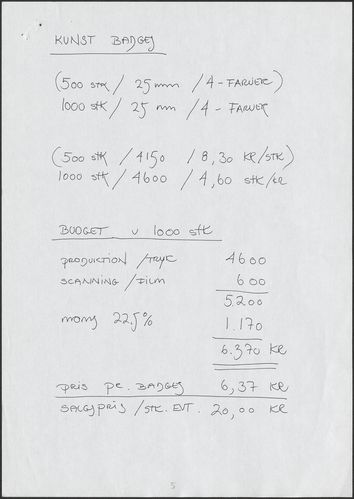 KUNST BADGES
(500 stk / 25 mm / 4 - FARVER)
1000 stk / 25 mm / 4 - FARVER
(500 stk / 4150 / 8,30 KR/STK)
1000 stk / 4600 / 4,60 stk/kr
BUDGET v 1000 stk
PRODUKTION / TRYK 4600
SCANNING / FILM 600
5.200
moms 22.5% 1.170
6.370 KR
PRIS PR. BADGES 6,37 KR
SALGSPRIS / STK. EVT. 20,00 KR
5